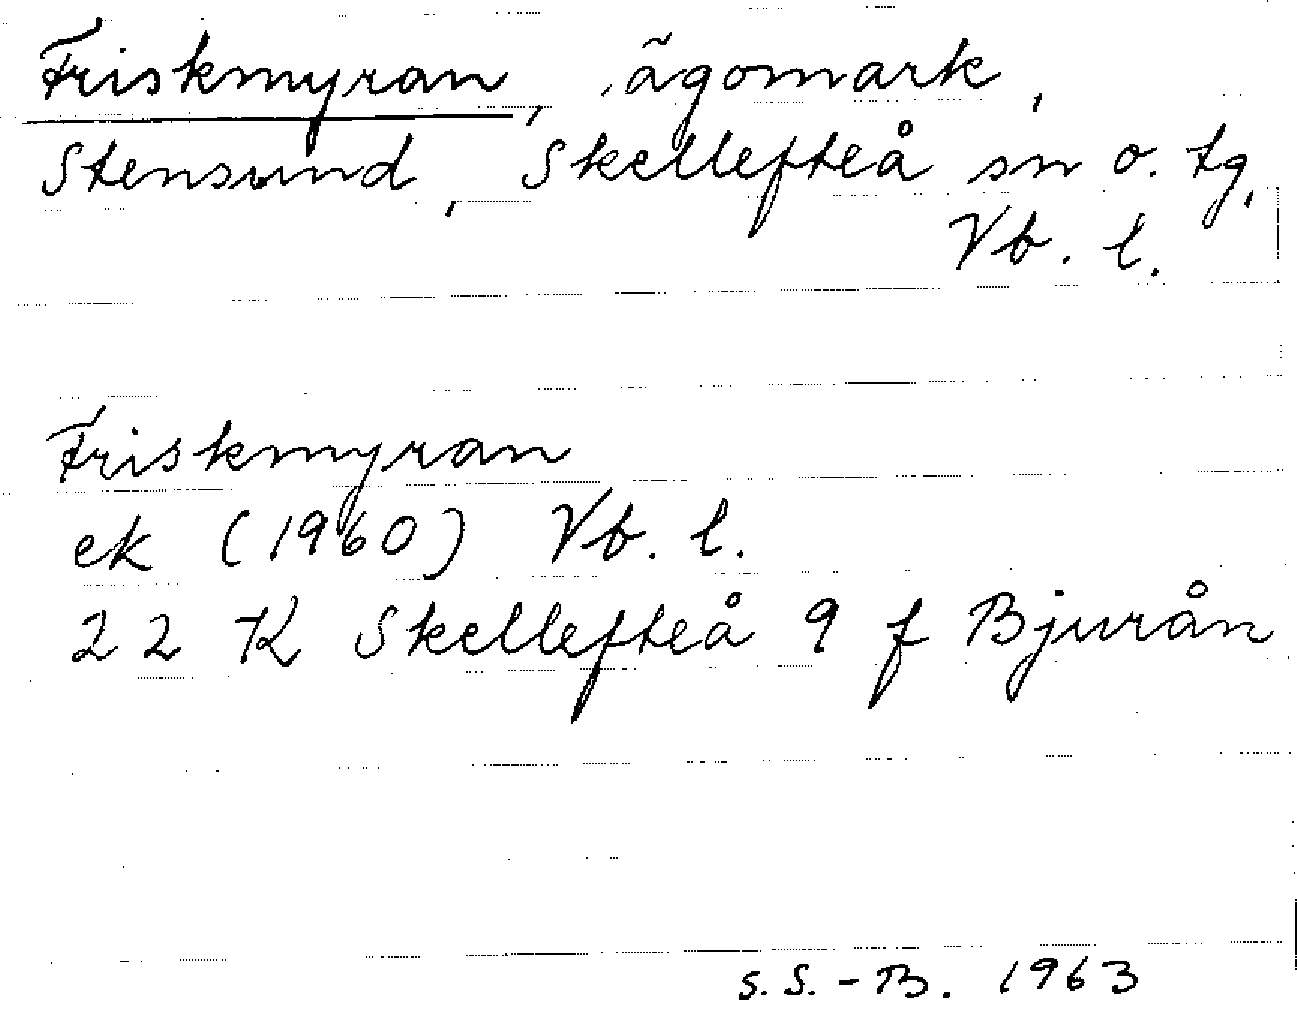 Friskmyran, ägomark,
Stensund, Skellefteå sn o. tg,
Vb. l.
Friskmyran
ek (1960) Vb. l.
22 K Skellefteå 9 f Bjurån
S. S. - B. 1963